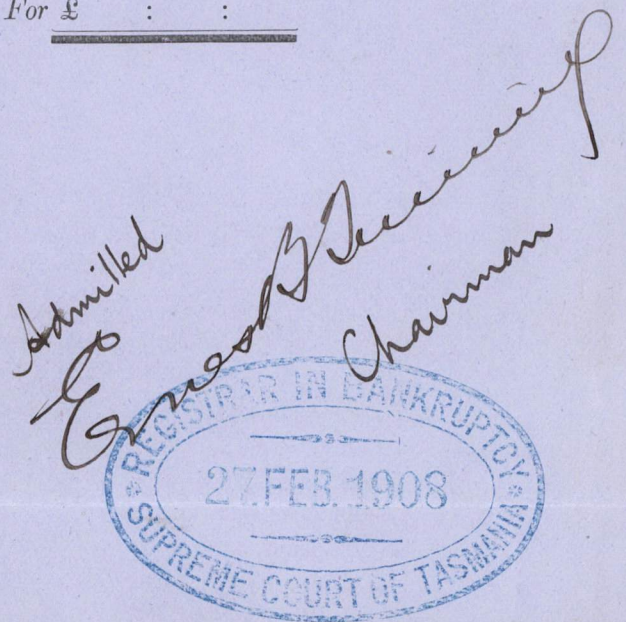 For £ : :
Admitted
Ernest B
Chairman
REGISTRAR IN BANKRUPTCY
27 FEB. 1908
SUPREME COURT OF TASMANIA